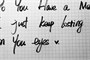 You Have a
just keep looking
You eyes